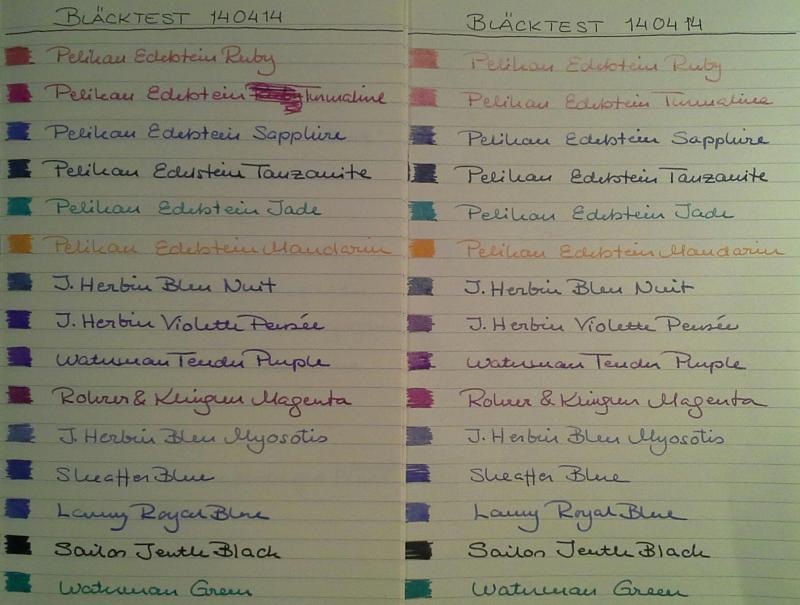 BLÄCKTEST 140414
Pelikan Edelstein Ruby
Pelikan Edelstein Turmaline
Pelikan Edelstein Sapphire
Pelikan Edelstein Tanzanite
Pelikan Edelstein Jade
Pelikan Edelstein Mandarin
J. Herbin Bleu Nuit
J. Herbin Violette Pensée
Waterman Tender Purple
Rohrer & Klingner Magenta
J. Herbin Bleu Myosotis
Sheaffer Blue
Lamy Royal Blue
Sailor Jentle Black
Waterman Green
BLÄCKTEST 140414
Pelikan Edelstein Ruby
Pelikan Edelstein Turmaline
Pelikan Edelstein Sapphire
Pelikan Edelstein Tanzanite
Pelikan Edelstein Jade
Pelikan Edelstein Mandarin
J. Herbin Bleu Nuit
J. Herbin Violette Pensée
Waterman Tender Purple
Rohrer & Klingner Magenta
J. Herbin Bleu Myosotis
Sheaffer Blue
Lamy Royal Blue
Sailor Jentle Black
Waterman Green